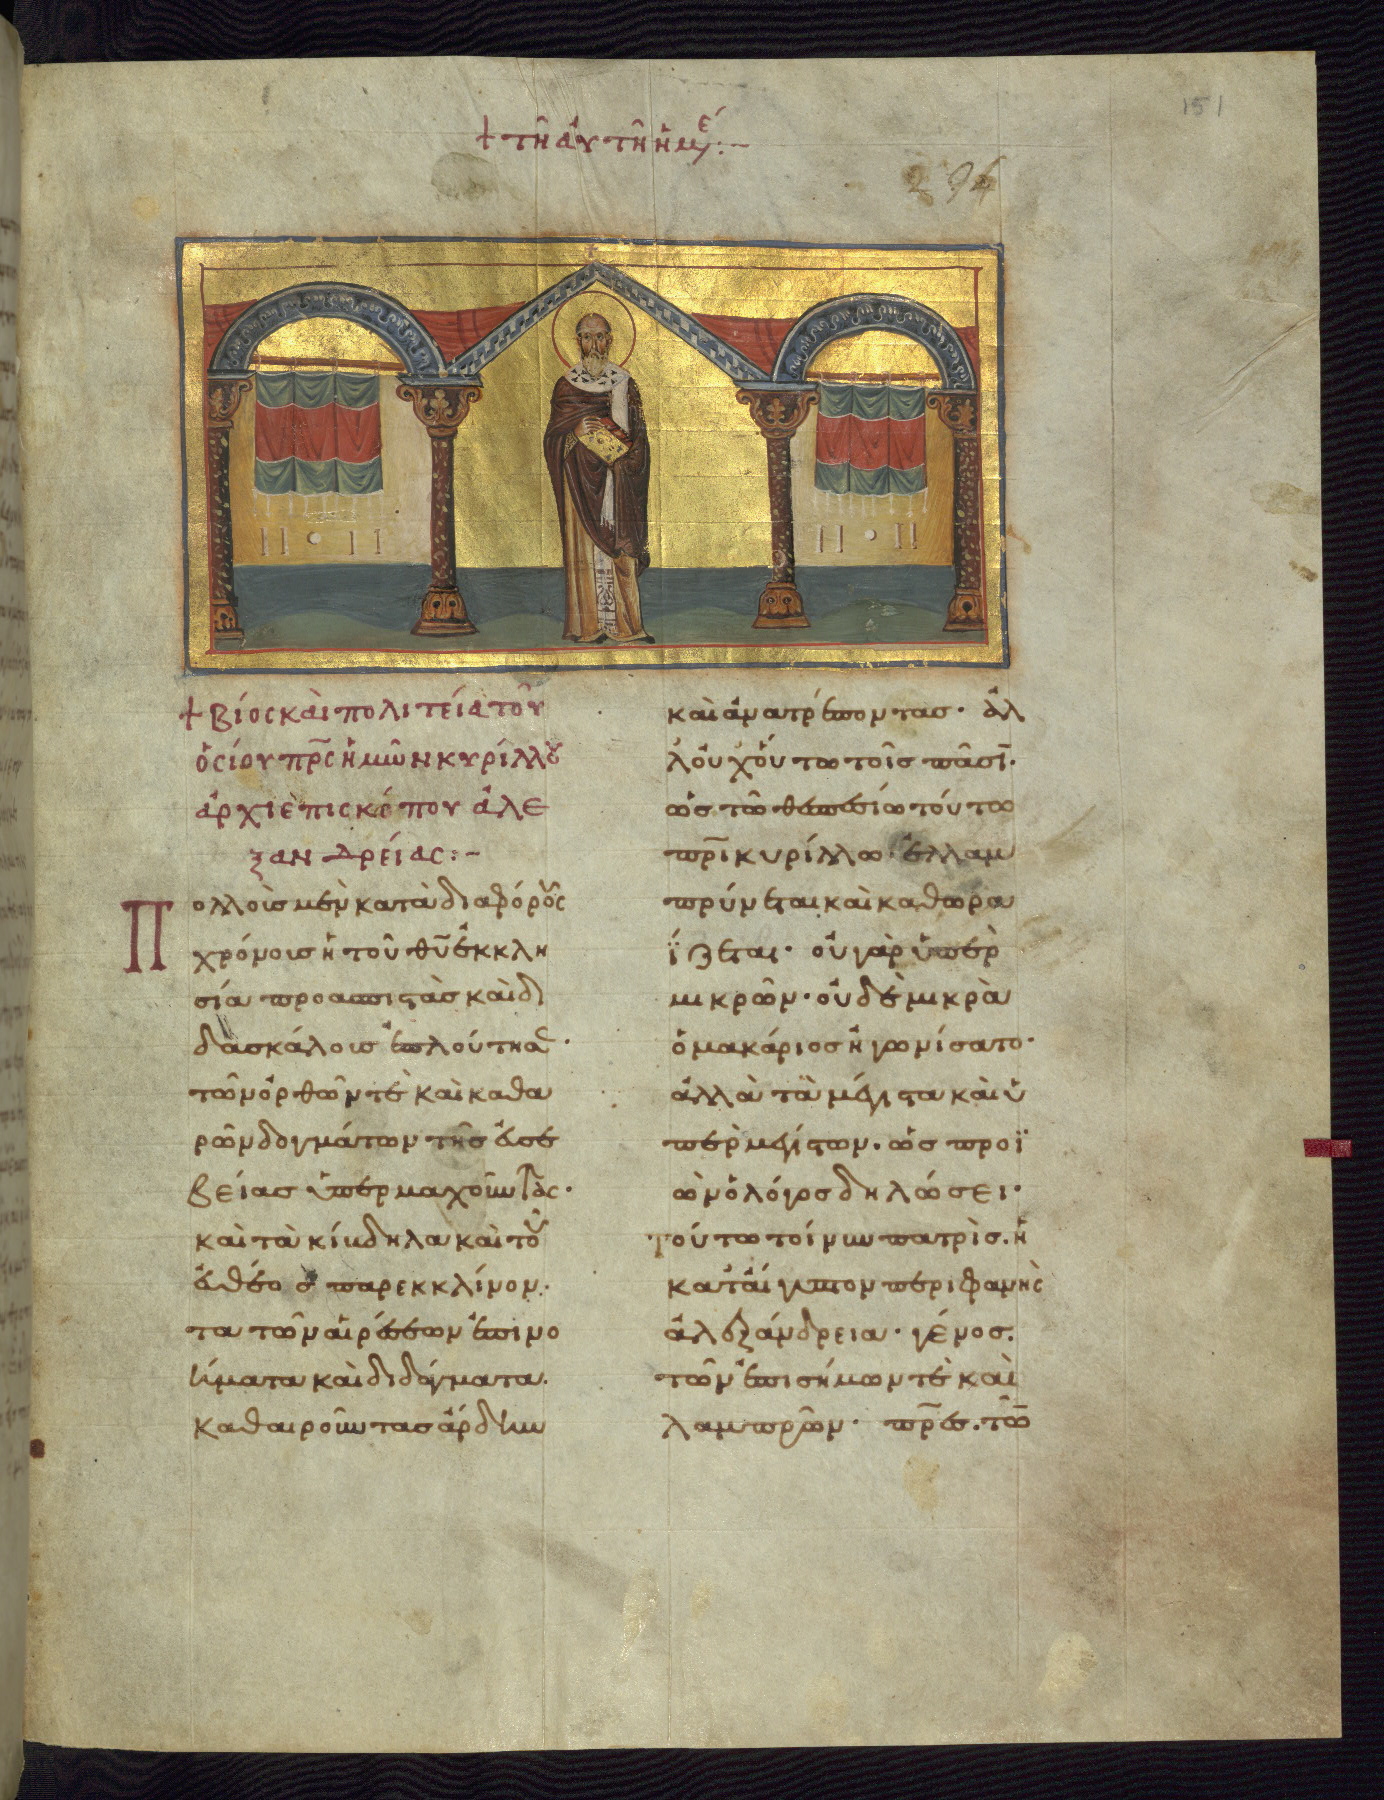 151
+ τῆ ἀυτῆ ἡμέ:~
294
+ βίος καὶ πολιτεία τοῦ
ὁσίου πρ̅ς ἡμῶν κυρίλλου
ἀρχιεπισκόπου ἀλε
ξανδρείας:~
Πολλοῖσ μὲν κατὰ διαφόρους
χρόνοισ ἡ τοῦ θ̅υ ἐκκλη
σία προασπιστὰσ καὶ δι
δασκάλοισ ἐπλούτησ·
τῶν ὀρθῶν τὲ καὶ καθα
ρῶν δογμάτων τῆσ ἐυσε
βείασ ὑπερμαχοῦντας·
καὶ τὰ κίνδηλα καὶ τοῦ
ἀθέοσ παρεκκλίνον·
τα τῶν αἱρέσεων ἐπινο
ήματα καὶ διδάγματα.
καθαιροῦντασ ἄρδην
καὶ ἀνατρέποντασ· ἀλ
λ' οὐχ' οὕτω τοῖσ πᾶσῖ·
ὡσ τῶ θεσπεσίω τούτω
πρ̅ὶ κυρίλλω· ἐλλαμ
πρύνεται καὶ καθωρα
ΐζεται· οὐ γὰρ ὑπὲρ
μικρῶν· οὐδὲ μικρὰ
ὁ μακάριοσ ἠγωνίσατο·
ἀλλὰ τὰ μέγιστα καὶ ὑ
πὲρ μεγίστων. ὡσ προϊ
ὼν ὁ λόγοσ δηλώσει·
τούτω τοίνυν πατρὶσ. ἡ
κατ' ἀίγυπτον περιφανὴς
ἀλεξάνδρεια· γένοσ.
τῶν ἐπισήμων τὲ καὶ
λαμπρῶν· πρ̅εσ. τῶ̅